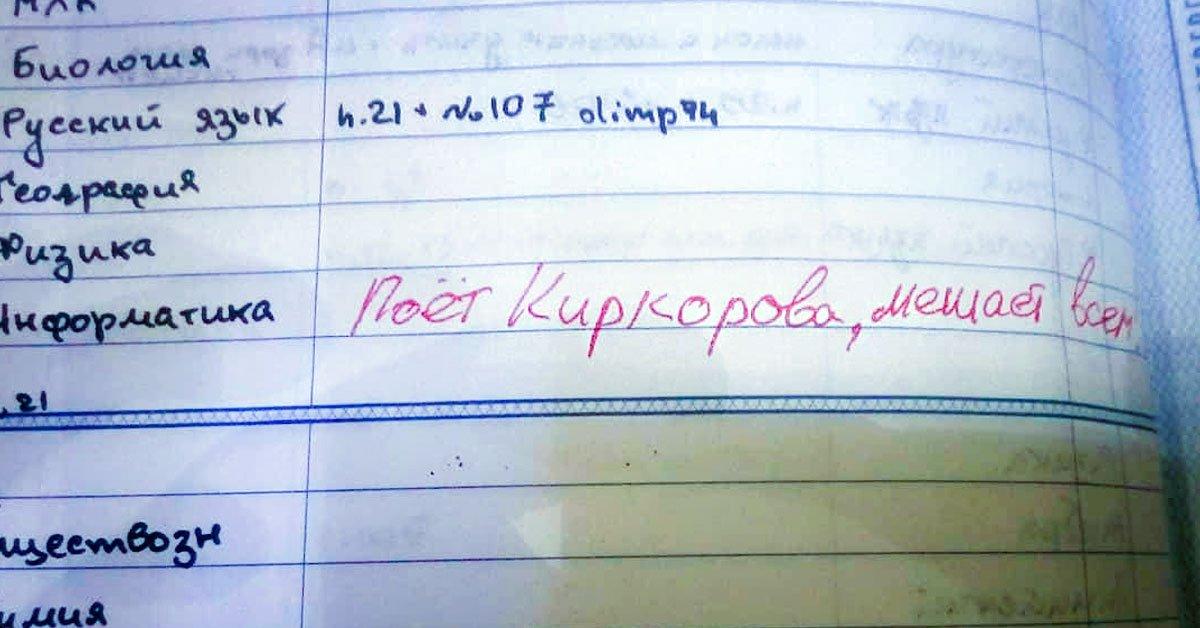 МХК
Биология
Русский язык п.21 + №107 olimp74
География
Физика
Информатика Поёт Киркорова, мешает всем
.21
ществозн
имия